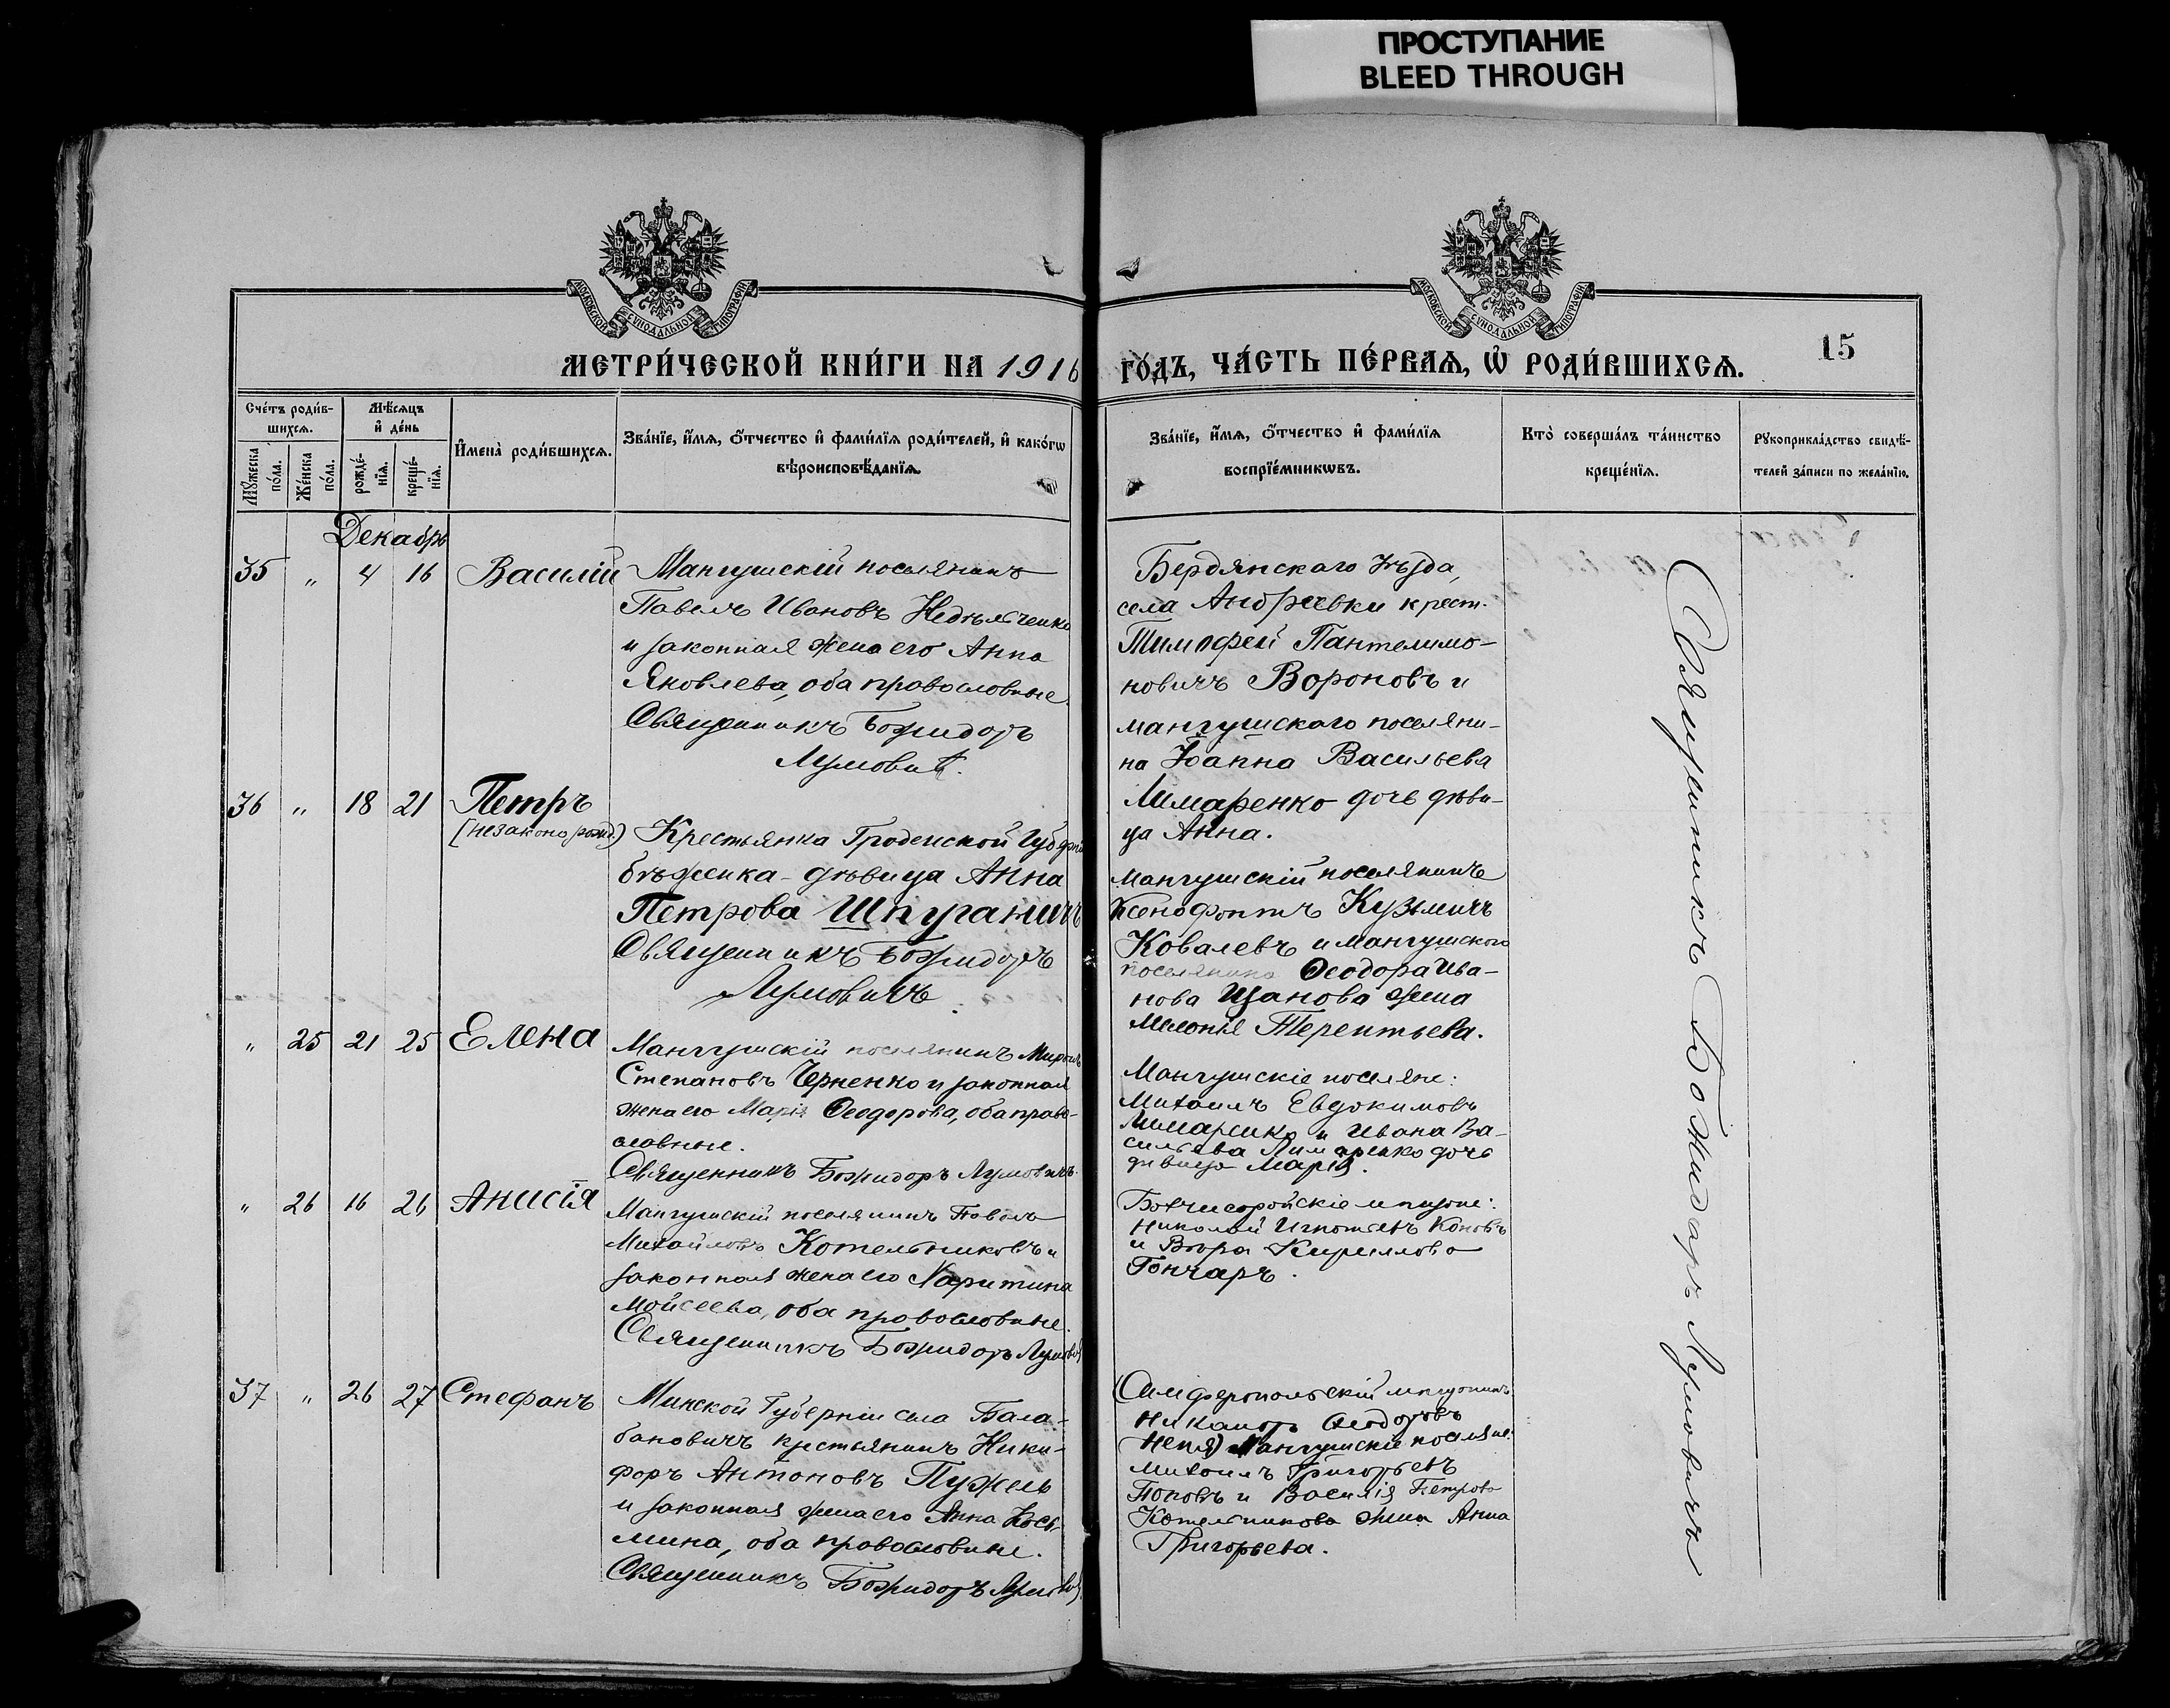 ПРОСТУПАНИЕ
BLEED THROUGH
МОСКОВСКОЙ СѴНОДАЛЬНОЙ ТИПОГРАФІИ
МОСКОВСКОЙ СѴНОДАЛЬНОЙ ТИПОГРАФІИ
МЕТРИ́ЧЕСКОЙ КНИ́ГИ НА 1916 ГО́ДЪ, ЧА́СТЬ ПЕ́РВАѦ, Ѡ РОДИ́ВШИХСѦ.
15
Сче́тъ роди́в-
шихсѧ.
Мꙋ́жеска
по́ла.
Же́нска
по́ла.
Мѣ́сѧцъ
и҆ де́нь
рожде́-
нїѧ.
креще́-
нїѧ.
И҆мена̀ роди́вшихсѧ.
Зва́нїе, и҆́мѧ, ѻ҆́тчество и҆ фами́лїѧ роди́телей, и҆ како́гѡ
вѣроисповѣ́данїѧ.
Зва́нїе, и҆́мѧ, ѻ҆́тчество и҆ фами́лїѧ
воспрїе́мникѡвъ.
Кто̀ соверша́лъ та́инство
креще́нїѧ.
Рꙋкоприкла́дство свидѣ́-
телей за́писи по жела́нїю.
Декабрь
35 " 4 16 Василій
Мангушскій поселянинъ
Павелъ Ивановъ Недѣльченко
и законная жена его Анна
Яковлева, оба православные.
Священникъ Божидаръ
Лумовичъ.
Бердянскаго Уѣзда,
села Андреевки крест.
Тимофей Пантелимо-
новичъ Вороновъ и
мангушскаго поселяни-
на Іоанна Васильева
Лимаренко дочь дѣви-
ца Анна.
36 " 18 21 Петръ
(незаконорожд.)
Крестьянка Гроденской Губерніи
бѣженка-дѣвица Анна
Петрова Шпуганичъ
Священникъ Божидаръ
Лумовичъ
Мангушскій поселянинъ
Ксенофонтъ Кузьмичъ
Ковалевъ и мангушскаго
поселянина Ѳеодора Ива-
нова жена
Меланья Терентьева.
" 25 21 25 Елена
Мангушскій поселянинъ Миронъ
Степановъ Черненко и законная
жена его Марія Ѳеодорова, оба право-
славные.
Священникъ Божидаръ Лумовичъ.
Мангушскіе поселяне:
Михаилъ Евдокимовъ
Лимаренко и Ивана Ва-
сильева Лимаренко дочь
дѣвица Марія.
" 26 16 26 Анисія
Мангушскій поселянинъ Павелъ
Михайловъ Котельниковъ и
законная жена его Харитина
Мойсеева, оба православные.
Священникъ Божидаръ Лумовичъ
Бахчисарайскіе мѣщане:
Николай Игнатьевъ Коновъ
и Вѣра Кириллова
Гончаръ.
37 " 26 27 Стефанъ
Минской Губерніи села Бала-
бановичъ крестьянинъ Ники-
форъ Антоновъ Пужель
и законная жена его Анна Кось-
мина, оба православные.
Священникъ Божидаръ Лумовичъ
Симферопольскій мѣщанинъ
Никаноръ Ѳеодоровъ
Мангушскіе поселяне:
Михаилъ Григорьевъ
Поповъ и Василія Петрова
Котельникова жена Анна
Григорьева.
Священникъ Божидаръ Лумовичъ